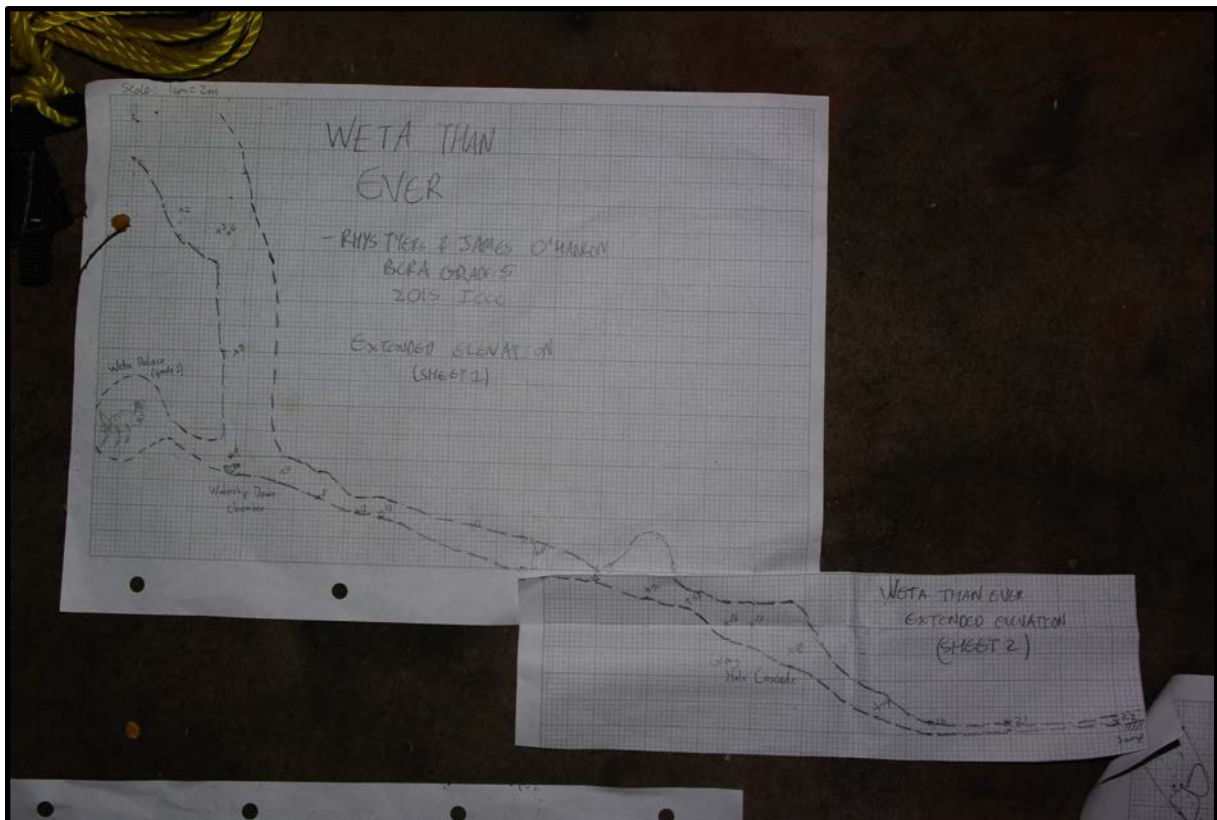 Scale 1cm = 2m
WETA THAN
EVER
- RHYS TYERS & JAMES O'HANLON
BCRA GRADE 5
2015 ICCC
EXTENDED ELEVATION
(SHEET 1)
Weta Palace
(grade 2)
Watership Down
chamber
WETA THAN EVER
EXTENDED ELEVATION
(SHEET 2)
Hole Cascade
Sump